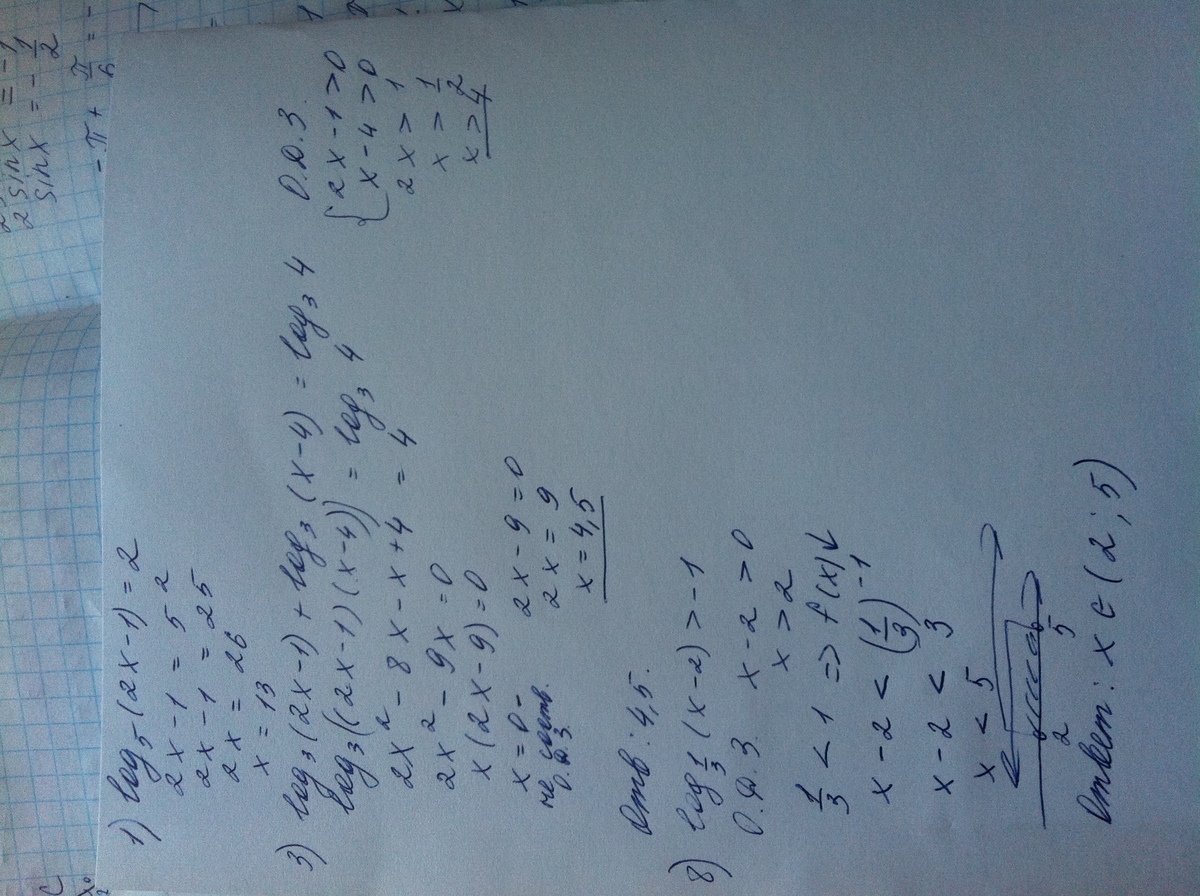 2 sin x = -1
sin x = - 1/2
- π + π/6 = -
1) log₅ (2x-1) = 2
2x-1 = 5²
2x-1 = 25
2x = 26
x = 13
3) log₃ (2x-1) + log₃ (x-4) = log₃ 4
log₃ ((2x-1)(x-4)) = log₃ 4
2x² - 8x - x + 4 = 4
2x² - 9x = 0
x (2x-9) = 0
x = 0 -
не соотв.
О.Д.З
2x - 9 = 0
2x = 9
x = 4,5
О.Д.З.
{ 2x-1 > 0
x-4 > 0
2x > 1
x > 1/2
x > 4
Отв: 4,5.
8) log 1/3 (x-2) > -1
О.Д.З. x-2 > 0
x > 2
1/3 < 1 => f(x)↓
x-2 < (1/3)⁻¹
x-2 < 3
x < 5
2 5
Ответ: x ∈ (2; 5)